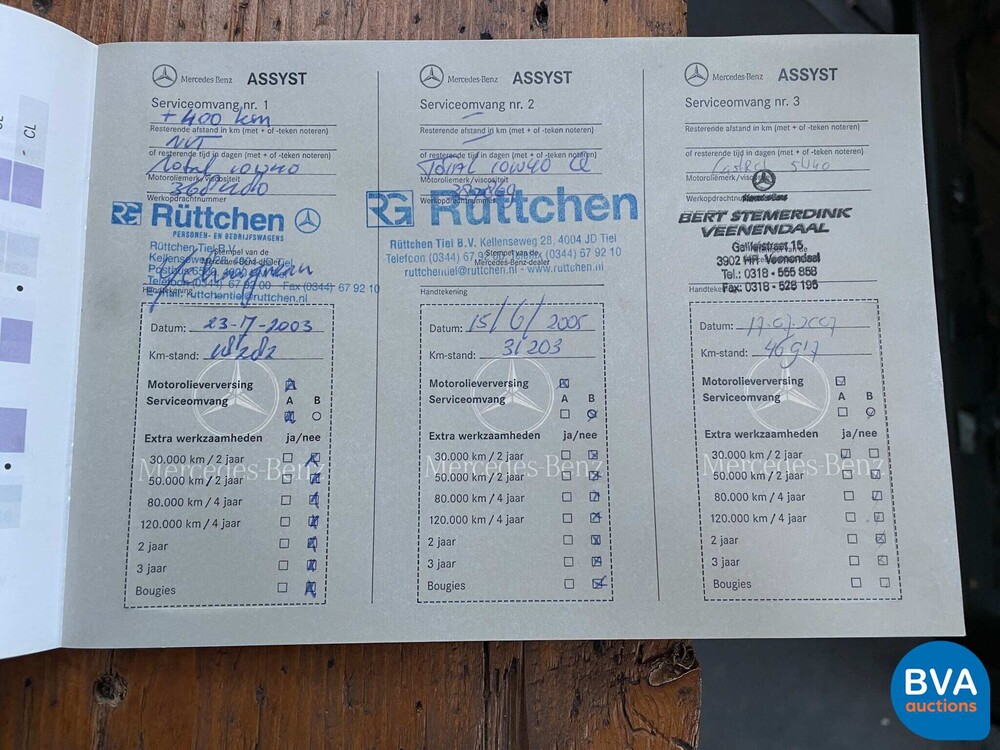 CL
Mercedes-Benz ASSYST
Serviceomvang nr. 1
+ 400 km
Resterende afstand in km (met + of -teken noteren)
NVT
of resterende tijd in dagen (met + of -teken noteren)
Total 10W40
Motoroliemerk/viscositeit
Werkopdrachtnummer
RG Rüttchen
PERSONEN- EN BEDRIJFSWAGENS
Rüttchen Tiel B.V.
Stempel van de
Mercedes-Benz-dealer
Fax (0344) 67 92 10
Handtekening
E-mail: ruttchentiel@ruttchen.nl
Datum: 23-7-2003
Km-stand: 18282
Motorolieverversing
Serviceomvang A B
Extra werkzaamheden ja/nee
30.000 km / 2 jaar
Mercedes-Benz
50.000 km / 2 jaar
80.000 km / 4 jaar
120.000 km / 4 jaar
2 jaar
3 jaar
Bougies
Mercedes-Benz ASSYST
Serviceomvang nr. 2
Resterende afstand in km (met + of -teken noteren)
of resterende tijd in dagen (met + of -teken noteren)
TOTAL 10W40
Motoroliemerk/viscositeit
Werkopdrachtnummer
RG Rüttchen
Rüttchen Tiel B.V. Kellenseweg 28, 4004 JD Tiel
Stempel van de
Telefoon (0344) 67 92 10
Mercedes-Benz-dealer
ruttchentiel@ruttchen.nl - www.ruttchen.nl
Handtekening
Datum: 15/6/2005
Km-stand: 31203
Motorolieverversing
Serviceomvang A B
Extra werkzaamheden ja/nee
30.000 km / 2 jaar
Mercedes-Benz
50.000 km / 2 jaar
80.000 km / 4 jaar
120.000 km / 4 jaar
2 jaar
3 jaar
Bougies
Mercedes-Benz ASSYST
Serviceomvang nr. 3
Resterende afstand in km (met + of -teken noteren)
of resterende tijd in dagen (met + of -teken noteren)
Castrol 5W40
Motoroliemerk/viscositeit
Mercedes-Benz
Werkopdrachtnummer
BERT STEMERDINK
VEENENDAAL
Galileistraat 15
3902 HR Veenendaal
Tel.: 0318 - 555 858
Fax: 0318 - 528 195
Datum: 17-07-2007
Km-stand: 46917
Motorolieverversing
Serviceomvang A B
Extra werkzaamheden ja/nee
30.000 km / 2 jaar
Mercedes-Benz
50.000 km / 2 jaar
80.000 km / 4 jaar
120.000 km / 4 jaar
2 jaar
3 jaar
Bougies
BVA
auctions